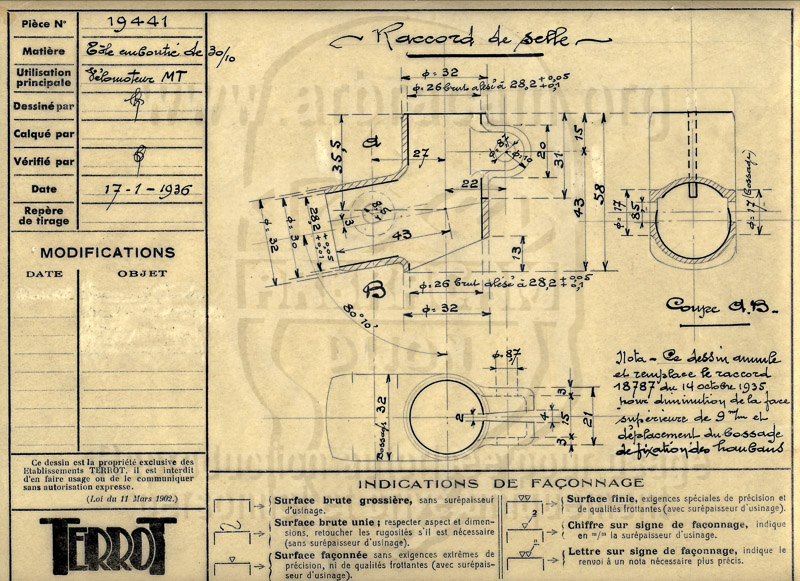 Pièce N° 19441
Matière Tôle emboutie de 30/10
Utilisation principale Vélomoteur MT
Dessiné par
Calqué par
Vérifié par
Date 17-1-1936
Repère de tirage
MODIFICATIONS
DATE OBJET
Ce dessin est la propriété exclusive des
Etablissements TERROT, il est interdit
d'en faire usage ou de le communiquer
sans autorisation expresse.
(Loi du 11 Mars 1902.)
TERROT
Raccord de selle
φ=32
φ=26 brut alésé à 28,2 +0,05 +0,1
35,5
A
27
φ=8,5
φ=10
20
31
15
22
43
58
φ=32
φ=30
28,2 +0,05 +0,01
3
8,5
43
13
B
φ=26 brut alésé à 28,2 +0,05 +0,1
φ=32
80°10'
φ=17
85
φ=17 (Bossage)
Coupe A.B.
φ=8,5
Bossage 32
2
3
4
15
3
21
Nota - Ce dessin annule
et remplace le raccord
18787 du 14 octobre 1935
pour diminution de la face
supérieure de 9 m/m et
déplacement du bossage
de fixation des haubans
INDICATIONS DE FAÇONNAGE
Surface brute grossière, sans surépaisseur
d'usinage.
Surface brute unie; respecter aspect et dimen-
sions, retoucher les rugosités s'il est nécessaire
(sans surépaisseur d'usinage).
Surface façonnée sans exigences extrêmes de
précision, ni de qualités frottantes (avec surépais-
seur d'usinage).
Surface finie, exigences spéciales de précision et
de qualités frottantes (avec surépaisseur d'usinage).
2
Chiffre sur signe de façonnage, indique
en m/m la surépaisseur d'usinage.
Lettre sur signe de façonnage, indique le
renvoi à un nota nécessaire plus précis.